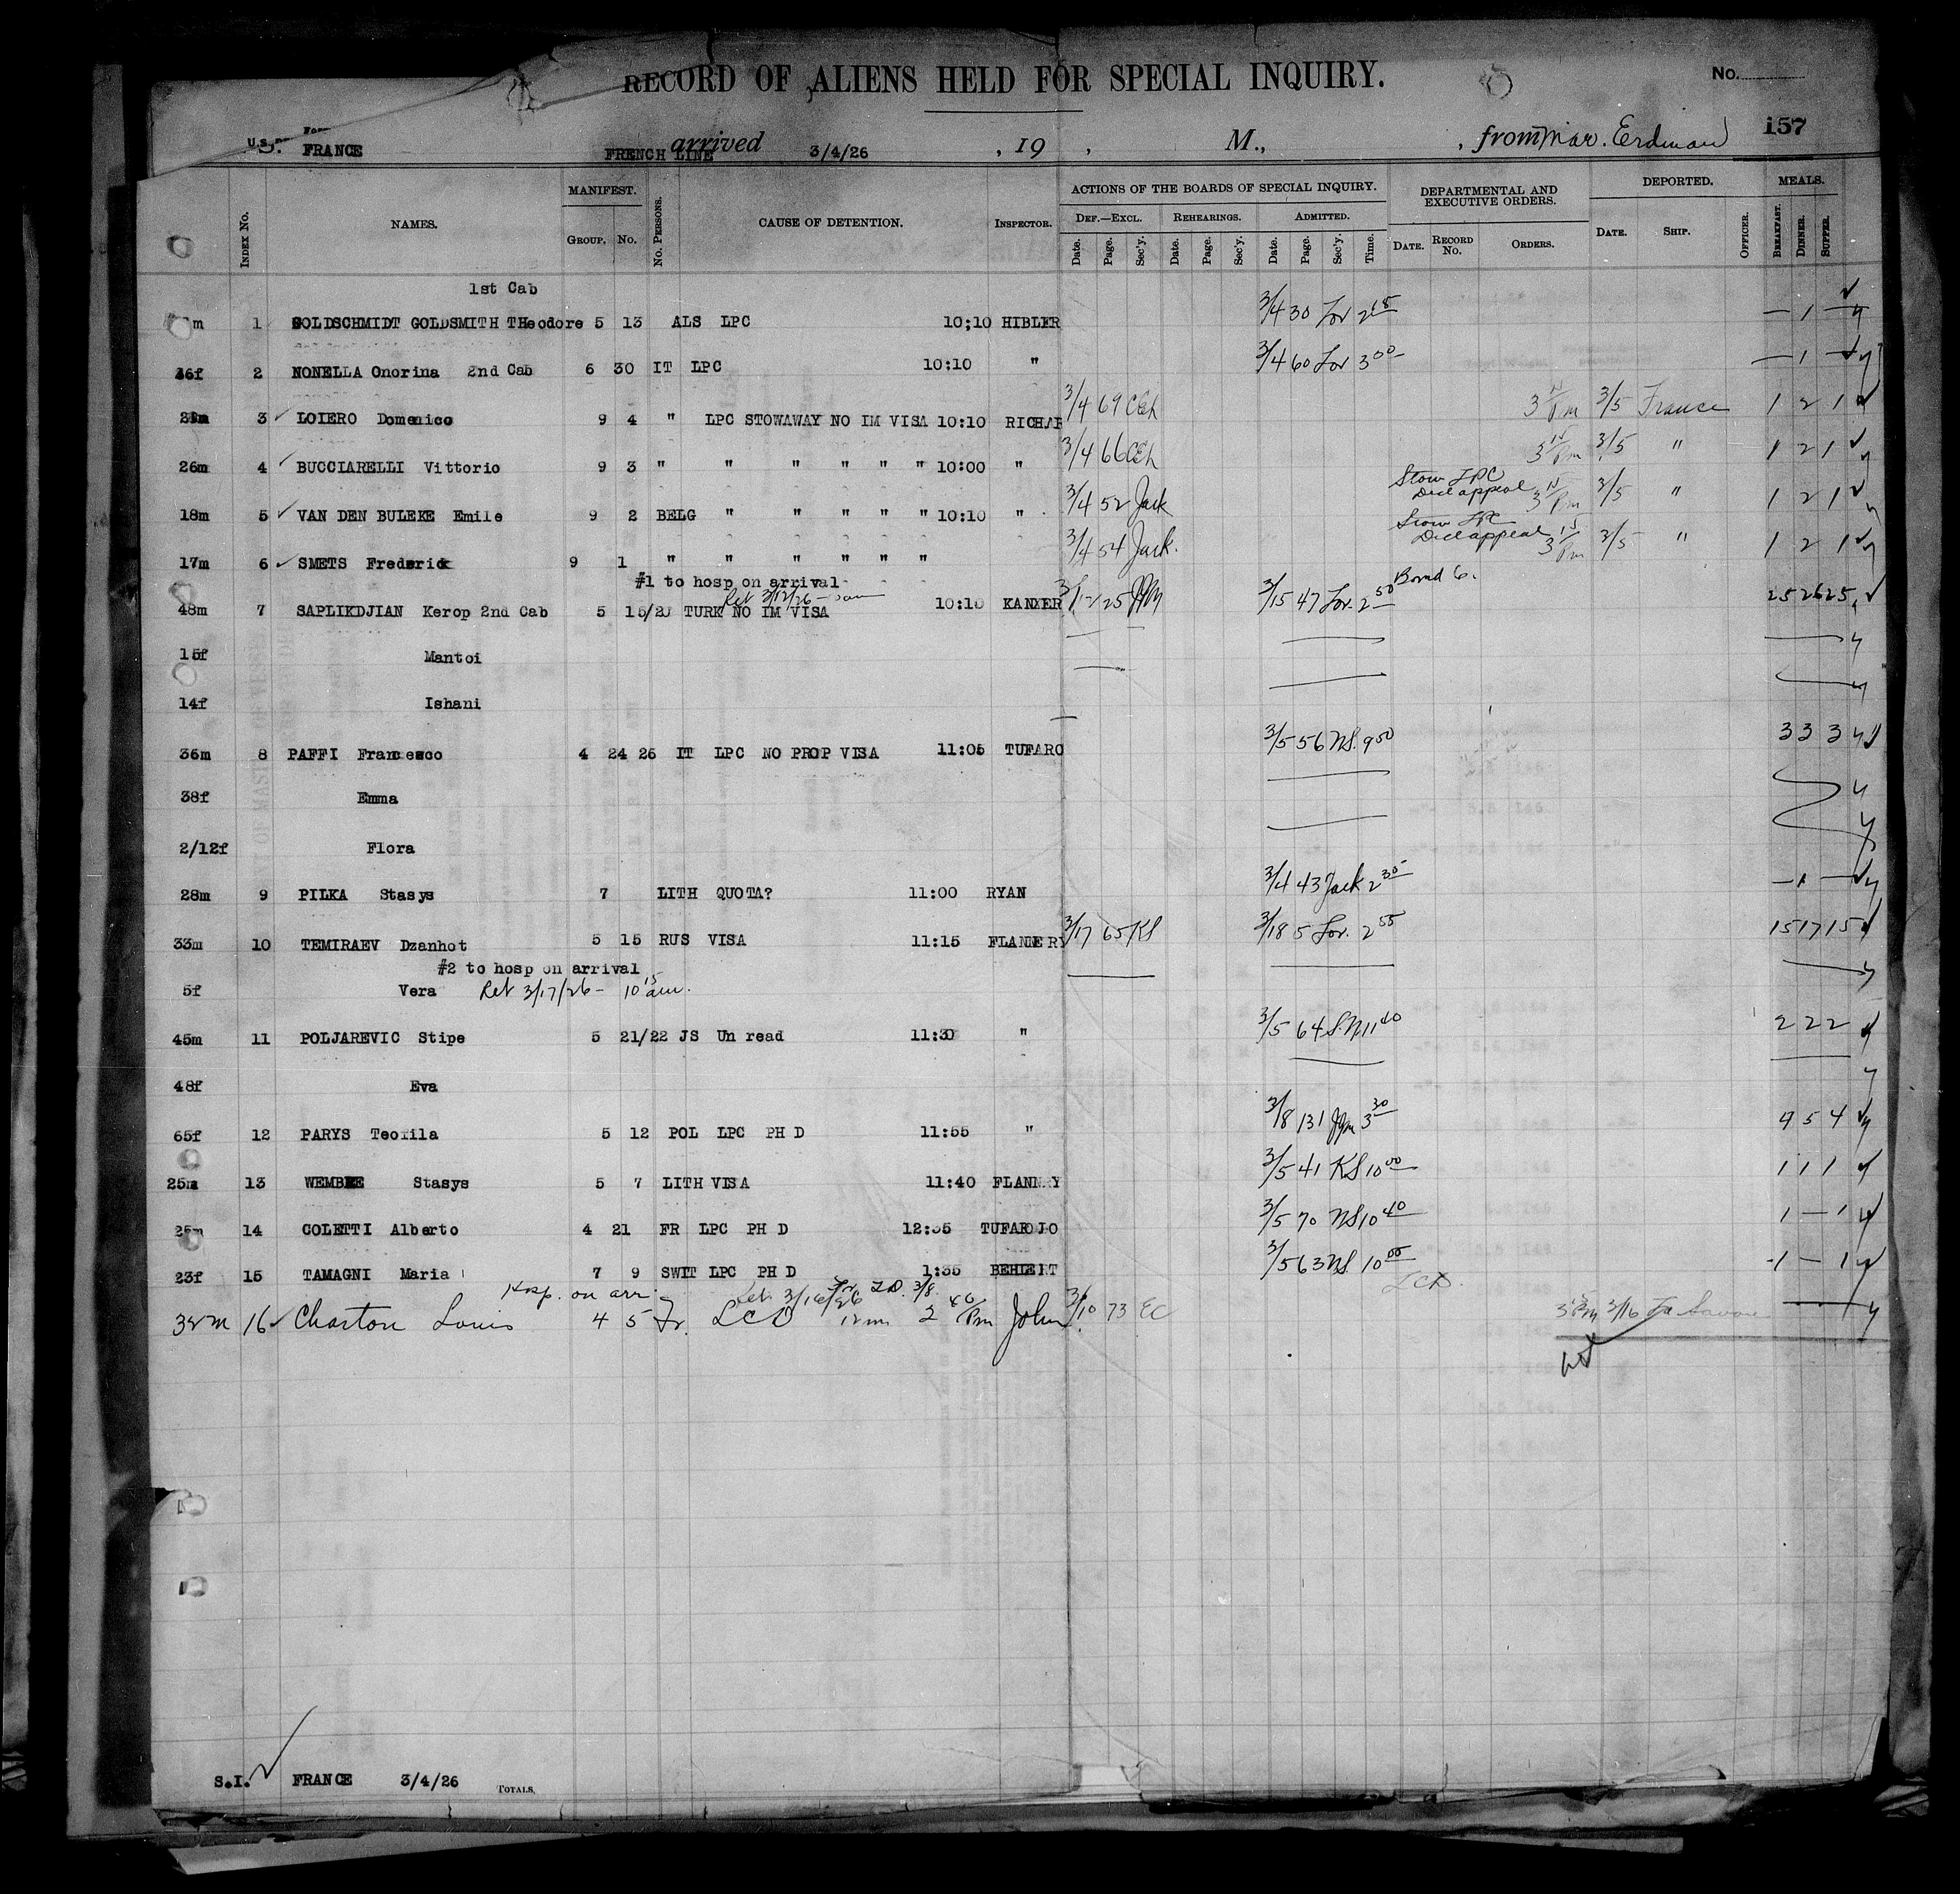 RECORD OF ALIENS HELD FOR SPECIAL INQUIRY.
No.
157
S. FRANCE FRENCH LINE arrived 3/4/26 , 19 , M., , from Mar. Erdman
INDEX No. NAMES. MANIFEST. GROUP. No. No. PERSONS. CAUSE OF DETENTION. INSPECTOR.
ACTIONS OF THE BOARDS OF SPECIAL INQUIRY. DEF.—EXCL. REHEARINGS. ADMITTED.
Date. Page. Sec'y. Date. Page. Sec'y. Date. Page. Sec'y. Time.
DEPARTMENTAL AND EXECUTIVE ORDERS. DATE. RECORD No. ORDERS.
DEPORTED. DATE. SHIP. OFFICER.
MEALS. BREAKFAST. DINNER. SUPPER.
1st Cab
m 1 GOLDSCHMIDT GOLDSMITH THeodore 5 13 ALS LPC 10;10 HIBLER 3/4 30 Lor 2 15 — 1 —
2 NONELLA Onorina 2nd Cab 6 30 IT LPC 10:10 " 3/4 60 Lor 3 00 — 1 —
3 LOIERO Domenico 9 4 " LPC STOWAWAY NO IM VISA 10:10 RICHAR 3/4 69 CEh 3 15 Pm 3/5 France 1 2 1
26m 4 BUCCIARELLI Vittorio 9 3 " " " " " " 10:00 " 3/4 66 CEh 3 15 Pm 3/5 " 1 2 1
18m 5 VAN DEN BULEKE Emile 9 2 BELG " " " " " 10:10 " 3/4 52 Jack Stow LPC Decl appeal 3 15 Pm 3/5 " 1 2 1
17m 6 SMETS Frederick 9 1 " " " " " " 3/4 54 Jack. Stow LPC Decl appeal 3 15 Pm 3/5 " 1 2 1
#1 to hosp on arrival
Ret 3/12/26
48m 7 SAPLIKDJIAN Kerop 2nd Cab 5 15/20 TURK NO IM VISA 10:10 KANZER 3/12 25 JPM 3/15 47 Lor. 2 50 Bond 6. 25 26 25
15f Mantoi
14f Ishani
36m 8 PAFFI Francesco 4 24 26 IT LPC NO PROP VISA 11:05 TUFARO 3/5 56 NS. 9 50 3 3 3
38f Emma
2/12f Flora
28m 9 PILKA Stasys 7 LITH QUOTA? 11:00 RYAN 3/4 43 Jack 2 35 — 1 —
33m 10 TEMIRAEV Dzanhot 5 15 RUS VISA 11:15 FLANNERY 3/17 65 KS 3/18 5 Lor. 2 55 15 17 15
#2 to hosp on arrival
5f Vera Ret 3/17/26 - 10 15 am.
45m 11 POLJAREVIC Stipe 5 21/22 JS Un read 11:30 " 3/5 64 S.N 11 40 2 2 2
48f Eva
65f 12 PARYS Teofila 5 12 POL LPC PH D 11:55 " 3/8 131 JPM 3 30 4 5 4
25m 13 Stasys 5 7 LITH VISA 11:40 FLANNRY 3/5 41 KS 10 00 1 1 1
25m 14 COLETTI Alberto 4 21 FR LPC PH D 12:35 TUFAROLO 3/5 70 NS 10 40 1 — 1
23f 15 TAMAGNI Maria 7 9 SWIT LPC PH D 1:35 BEHLERT 3/5 63 NS. 10 00 1 — 1
Hosp. on arr. Ret. 3/16/26 LCD.
32m 16 Charton Louis 4 5 Fr. LCD 2 40 Pm John. 3/10 73 EC 3 Pm 3/16 La Savoie
S.I. FRANCE 3/4/26 TOTALS.